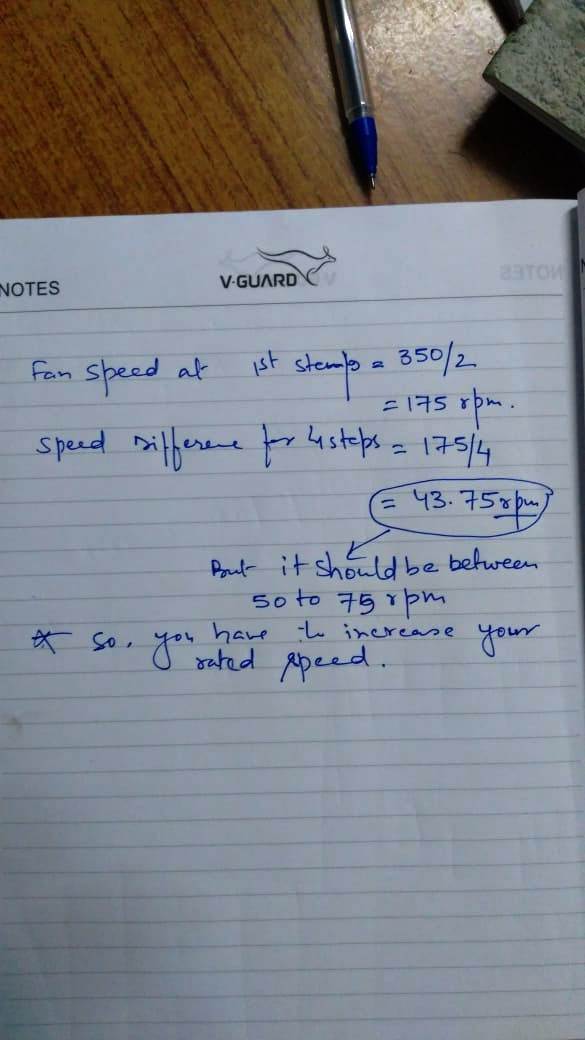 NOTES
V-GUARD
NOTES
Fan speed at 1st stemp = 350/2
= 175 rpm.
speed Difference for 4 steps = 175/4
= 43.75 rpm
But it should be between
50 to 75 rpm
* so, you have to increase your
rated speed.